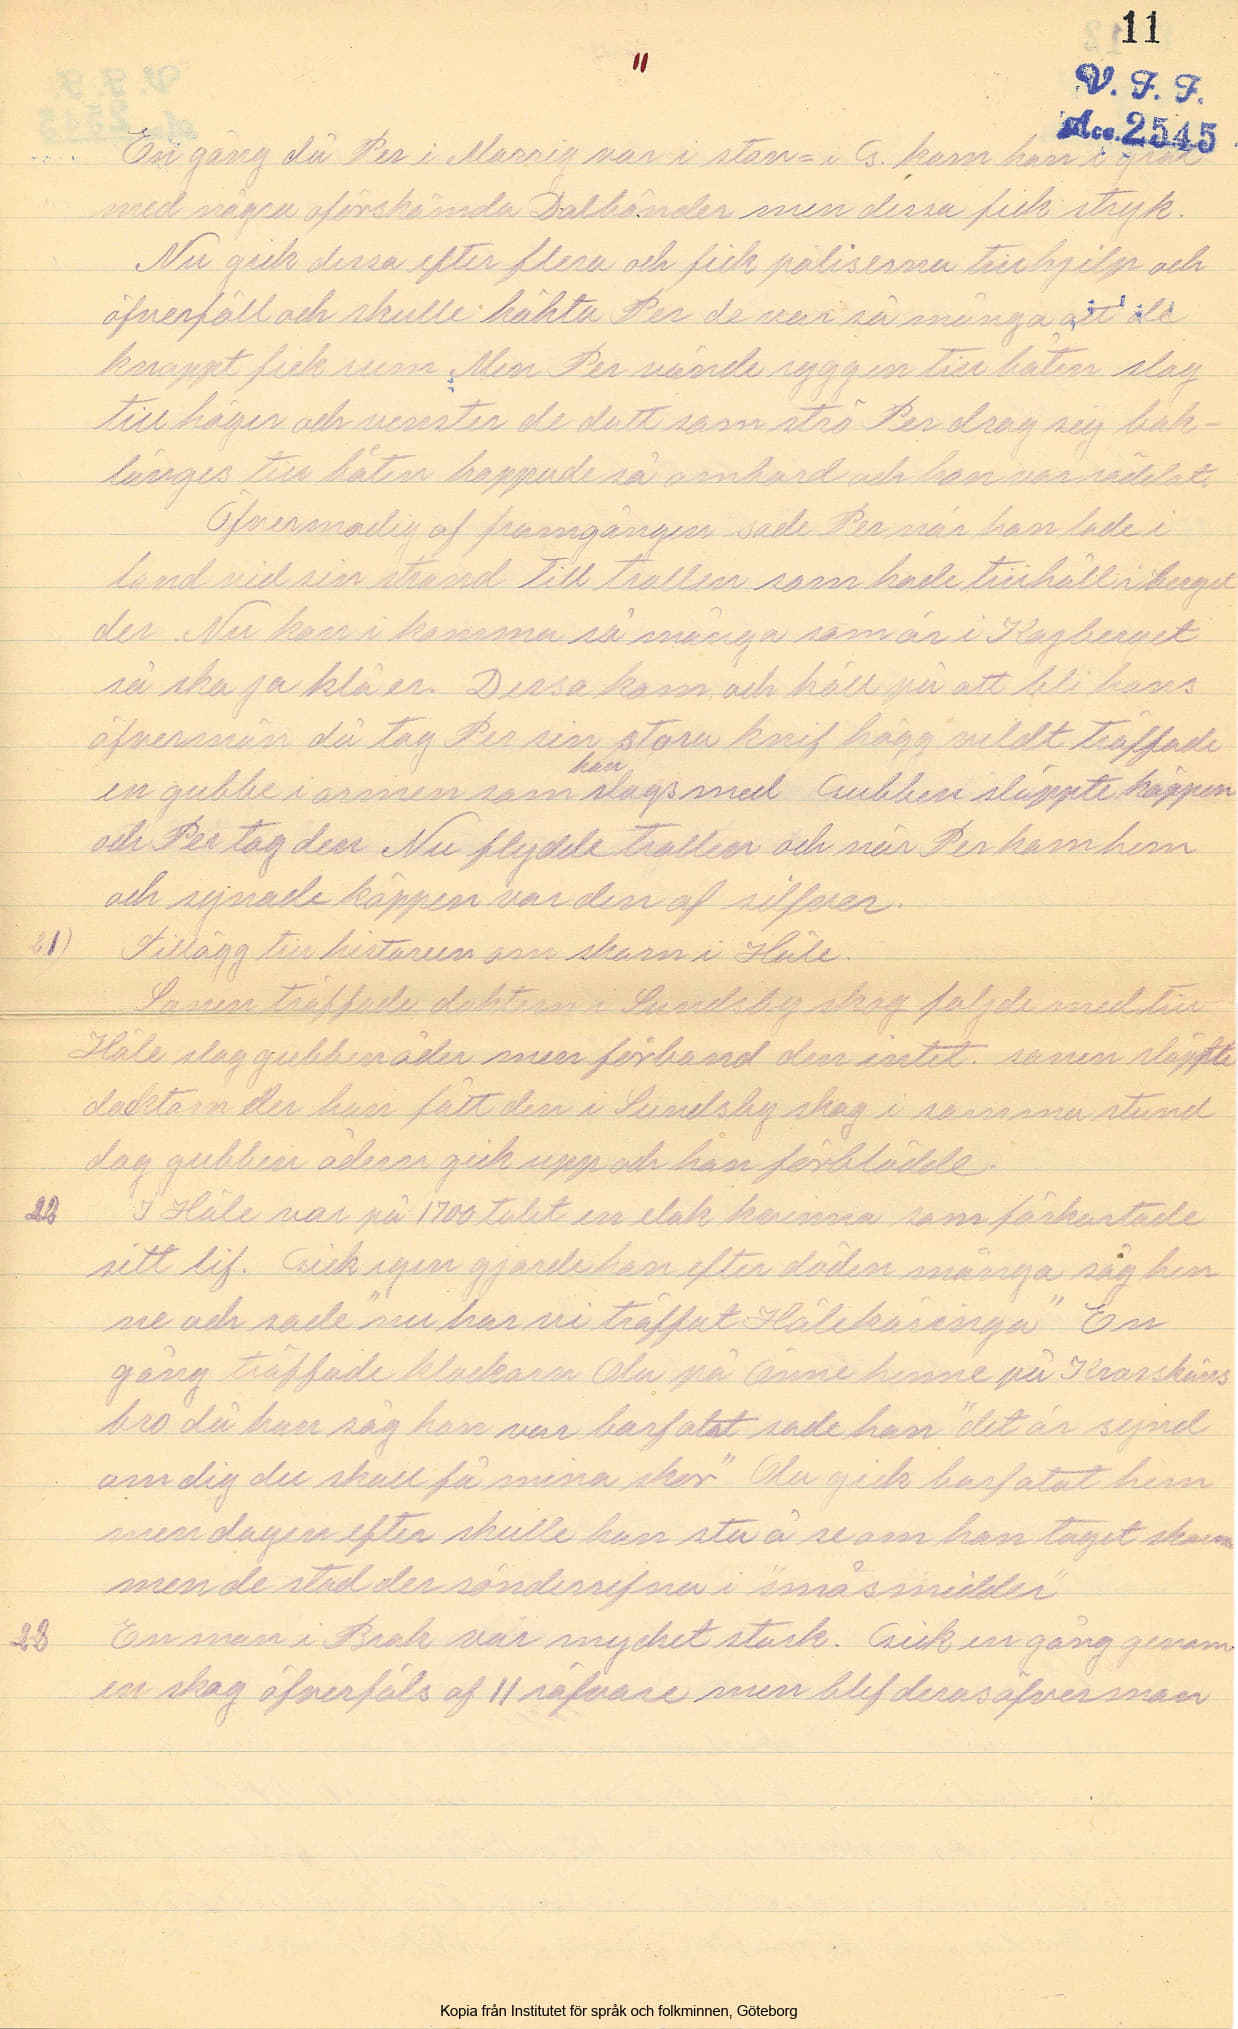 11
11
V. F. F.
Acc. 2545
En gång då Per i Massrig var i stan = i G. kom han i gräl
med några oförskämda Dalbönder men dessa fick stryk.
Nu gick dessa efter flera och fick poliserna till hjelp och
öfverföll och skulle häkta Per de var så många att de
knappt fick rum Men Per vände ryggen till båten slog
till höger och venster de datt som strö Per drog sig bak-
länges till båten hoppade så ombord och han var rädda.
Öfvermodig af framgången sade Per när han lade i
land vid sin strand till trollen som hade tillhåll i berget
der Nu kan i komma så många som är i Kasberget
så ska ja klå er. Dessa kom och höll på att bli hans
öfvermän då tog Per sin stora knif högg vildt träffade
en gubbe i armen som han slogs med Gubben släppte käppen
och Per tog den Nu flydde trollen och när Per kom hem
och synade käppen var den af silfver.
21) Tillägg till historien om skam i Häle.
Sonen träffade doktorn i Sundsby skog följde med till
Häle slog gubben åder men förband den intet. sonen släppte
doktorn der han fått den i Sundsby skog i samma stund
dog gubben ådern gick upp och han förblödde.
22 I Häle var på 1700 talet en elak kvinna som förkortade
sitt lif. Gick igen gjorde hon efter döden många såg hen
ne och sade "nu har vi träffat Hälekäringa" En
gång träffade klockarn Ola på Änne henne på Krarskärs
bro då han såg hon var barfotat sade han "det är synd
om dig du skall få mina skor" Ola gick barfotat hem
men dagen efter skulle han sta å se om hon taget skorna
men de stod der sönderrifna i "småsmidder"
23 En man i Brak var mycket stark. Gick en gång genom
en skog öfverföls af 11 röfvare men blef deras öfverman
Kopia från Institutet för språk och folkminnen, Göteborg